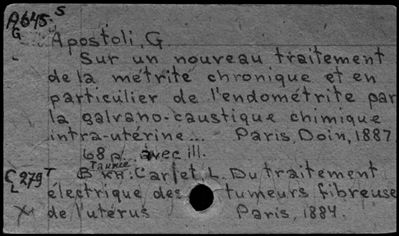 A645. S
G
Apostoli, G
Sur un nouveau traitement
de la métrite chronique et en
particulier de l'endométrite par
la galvano-caustique chimique
intra-utérine... Paris, Doin, 1887
68 p. avec ill.
C279 T
L
Carlet, L. Du traitement
électrique des tumeurs fibreuse
de l'utérus Paris, 1884.